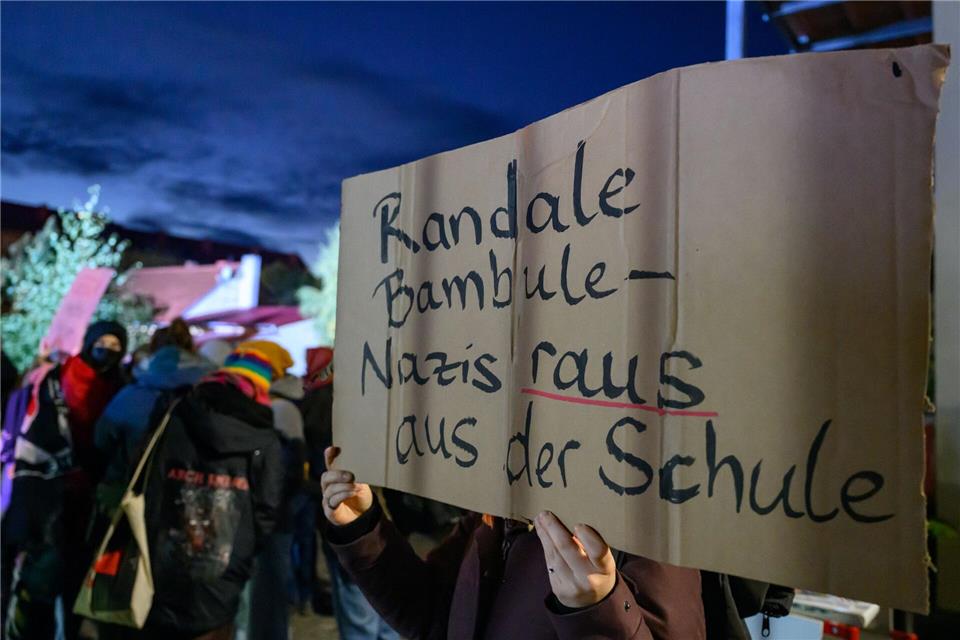 Randale
Bambule –
Nazis raus
aus der Schule
ARCH ENEMY